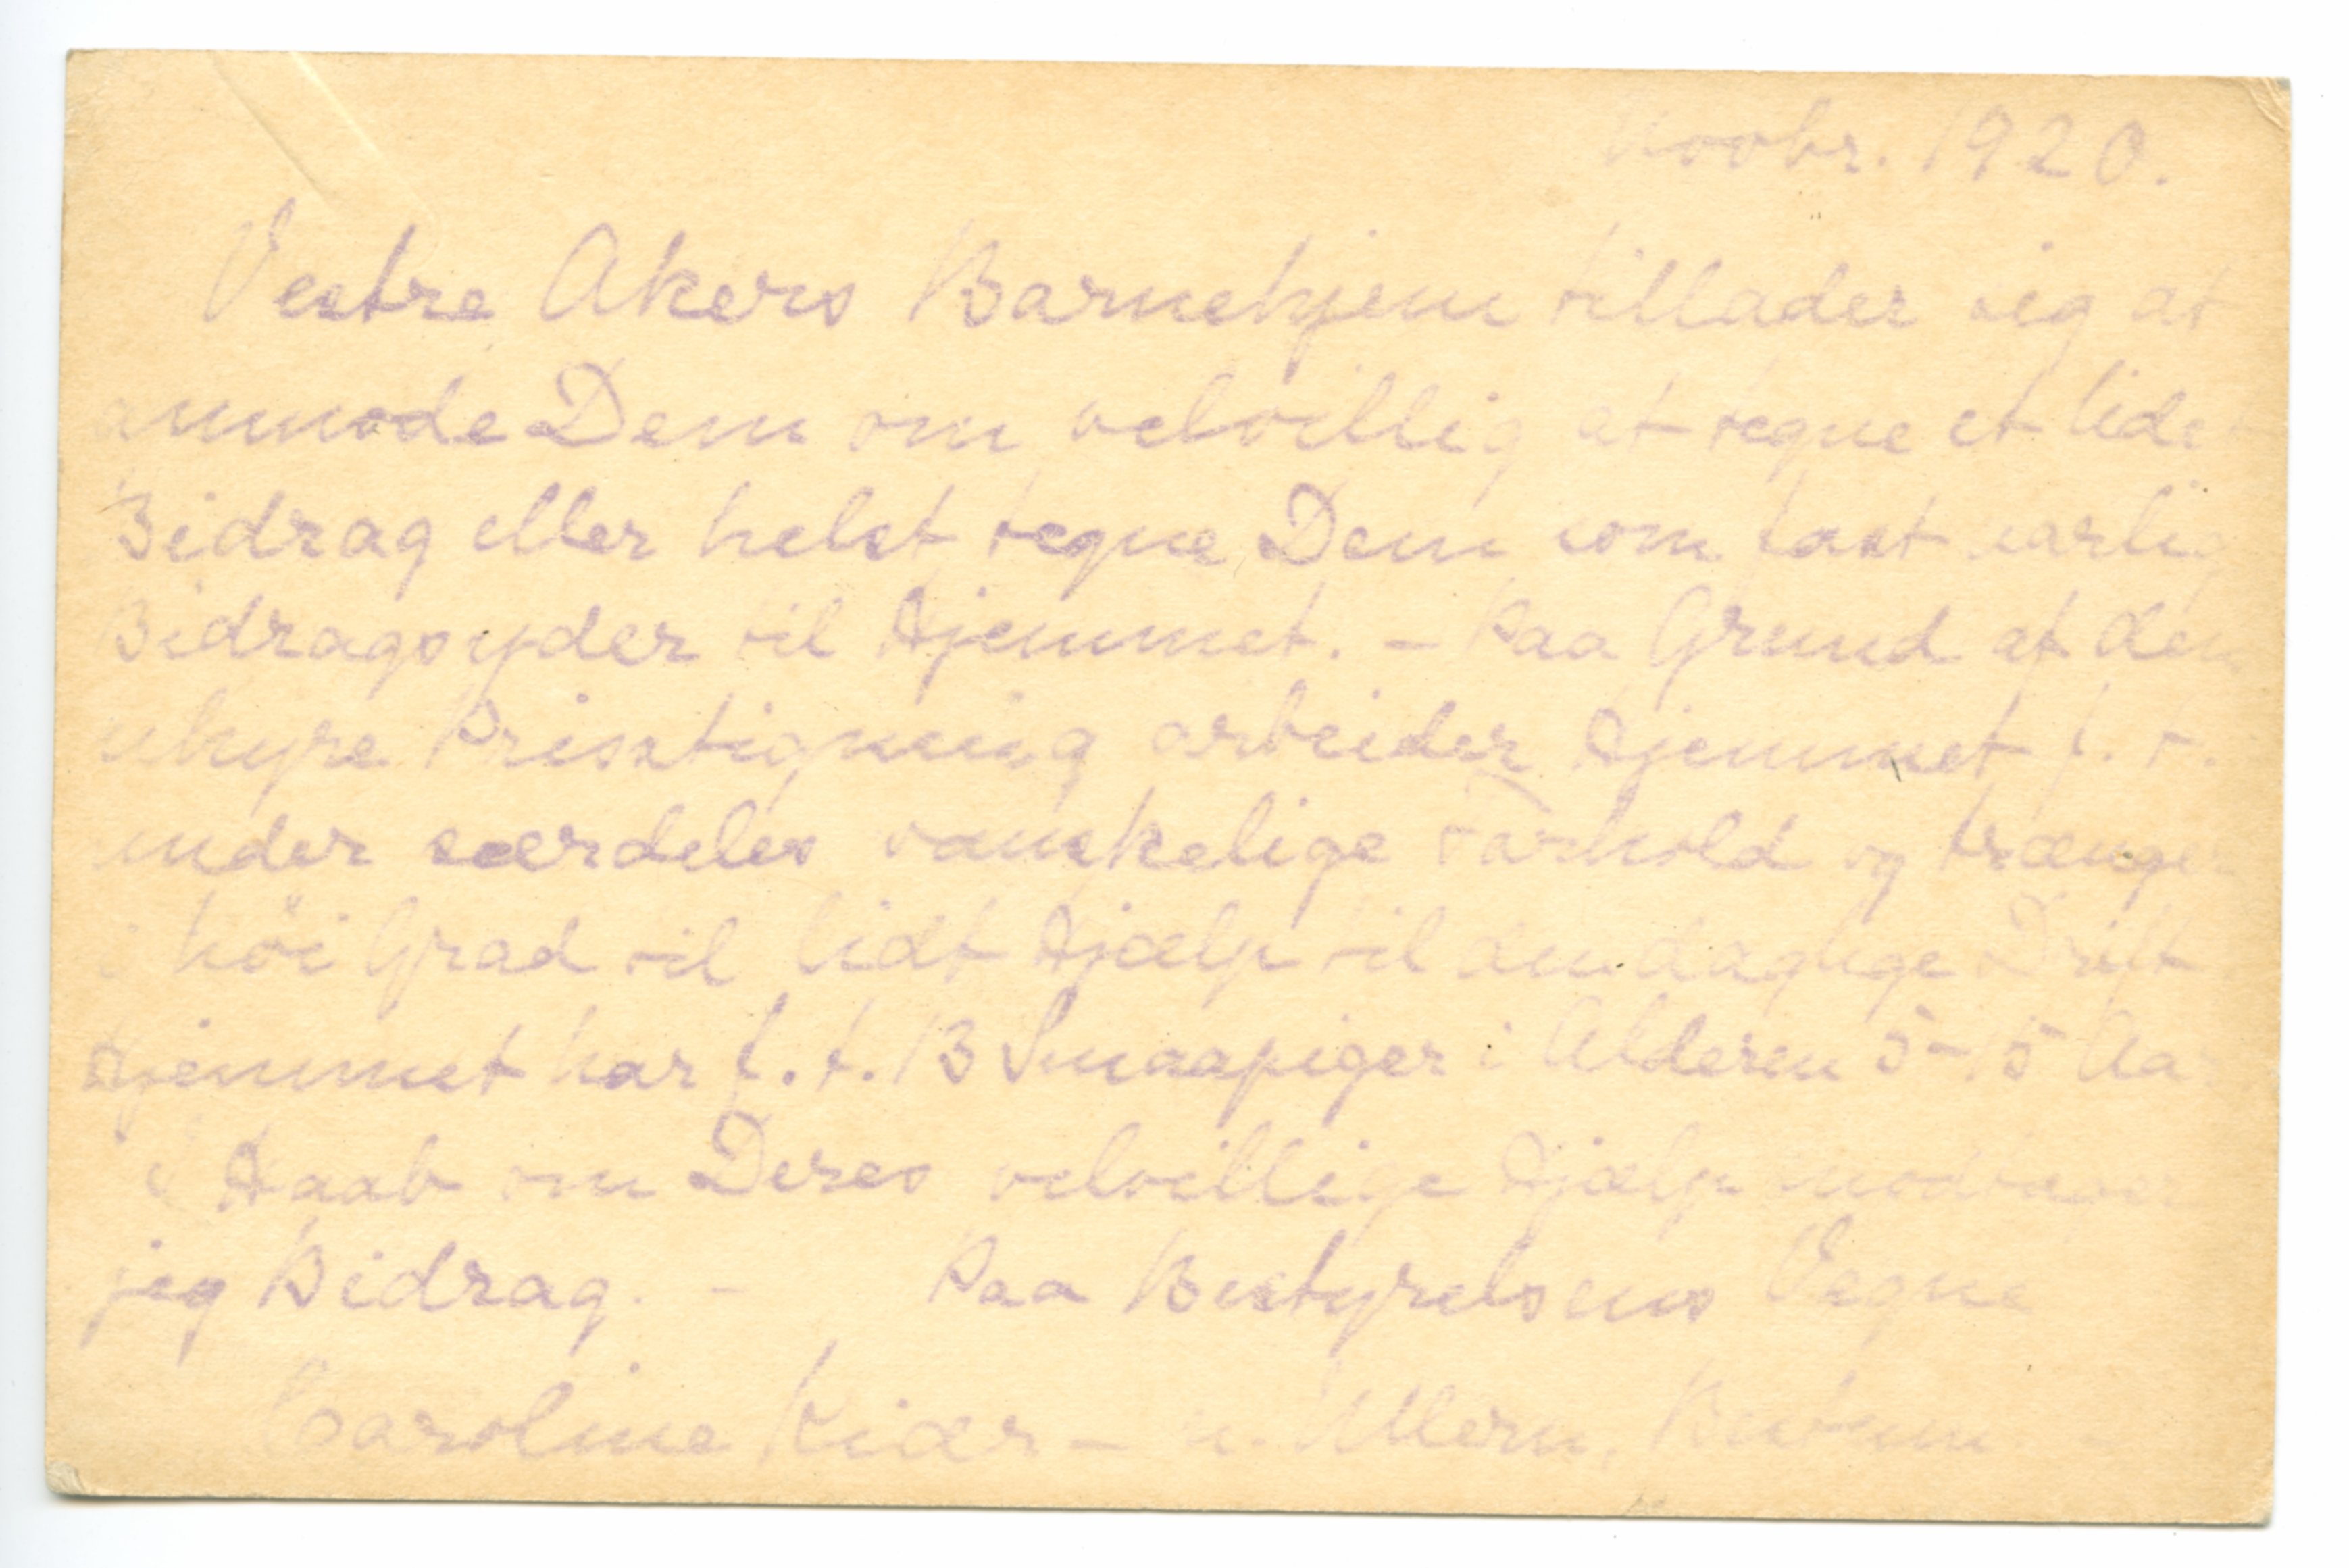 Novbr. 1920.
Vestre Akers Barnehjem tillader sig at
anmode Dem om velvillig at tegne et lidet
Bidrag eller helst tegne Dem som fast aarlig
Bidragsyder til Hjemmet. - Paa Grund af den
uhyre Prisstigning arbeider Hjemmet f. t.
under særdeles vanskelige Vårhold og trænger
i høi Grad til lidt Hjælp til den daglige Drift
Hjemmet har f. t. 13 Smaapiger i Alderen 5-15 Aar
I Haab om Deres velvillige Hjælp modtager
jeg Bidrag. - Paa Bestyrelsens Vegne
Caroline Kiær - n. Ullern,